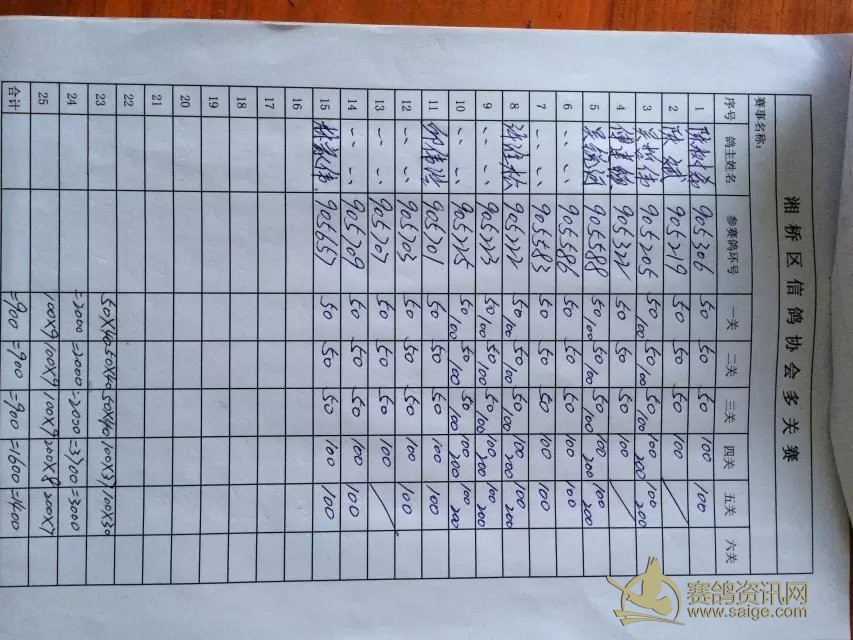 湘桥区信鸽协会多关赛
赛事名称:
序号 鸽主姓名 参赛鸽环号 一关 二关 三关 四关 五关 六关
1 905306 50 50 50 100 100
2 905219 50 50 50 100 /
3 905205 50/100 50/100 50/100 100 200 100 200
4 905322 50 50 50 100 /
5 905588 50/100 50/100 50/100 100 200 100 200
6 、、 、、 905586 50 50 50 100 100
7 、、 、、 905583 50 50 50 100 100
8 905222 50/100 50/100 50/100 100 200 100 200
9 、、 、、 905223 50/100 50/100 50/100 100 200 100 200
10 、、 、、 905225 50/100 50/100 50/100 100 200 100 200
11 905201 50 50 50 100 100
12 、、 、、 905203 50 50 50 100 100
13 、、 、、 905207 50 50 50 100 /
14 、、 、、 905209 50 50 50 100 100
15 905657 50 50 50 100 100
16
17
18
19
20
21
22
23 50X40 50X40 50X40 100X37 100X30
24 =2000 =2000 =2000 =3700 =3000
25 100X9 100X9 100X9 200X8 200X7
合计 =900 =900 =900 =1600 =1400
赛鸽资讯网
www.saige.com